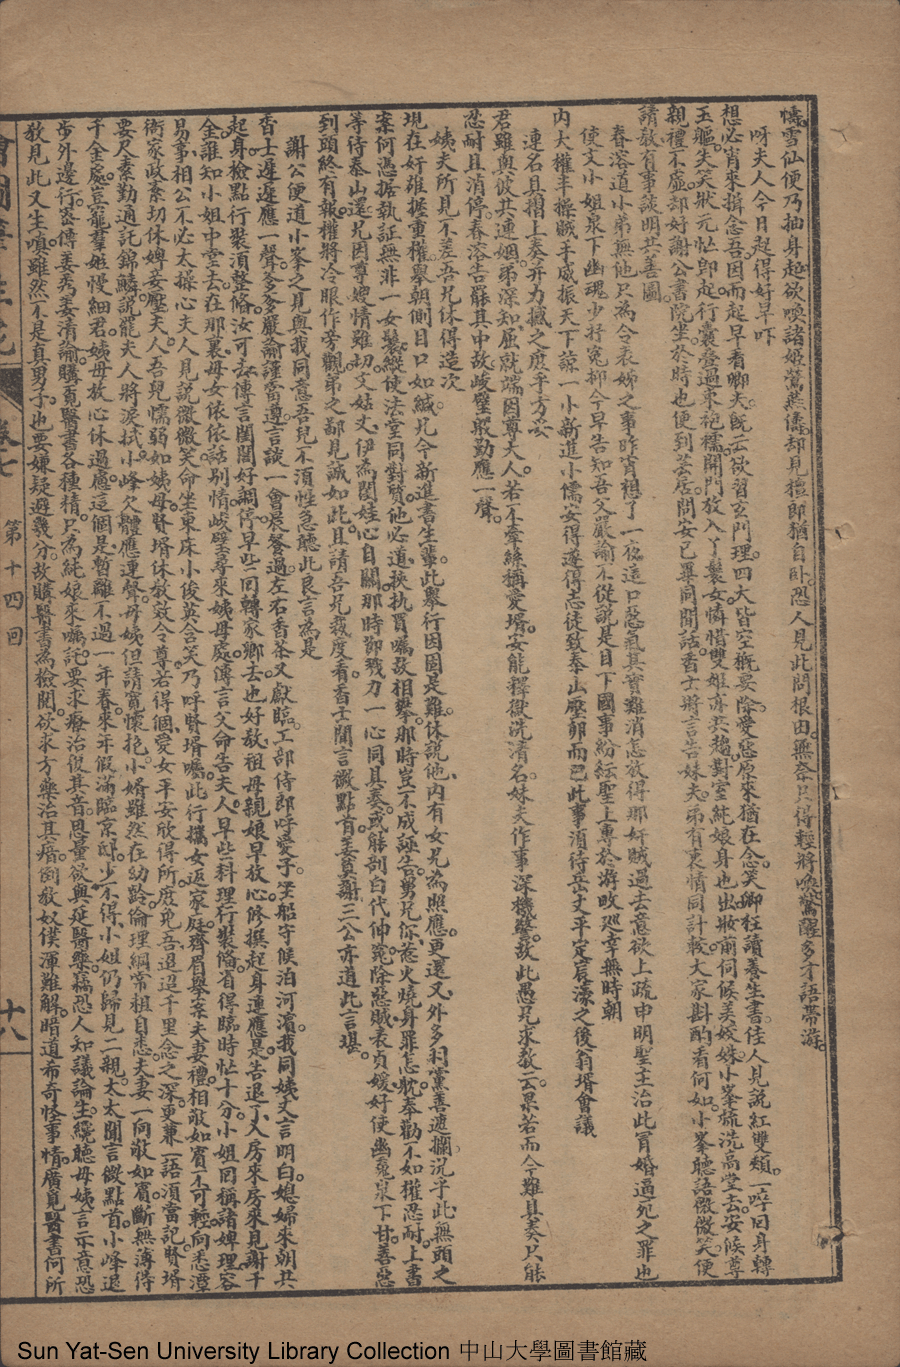 幬雪仙便乃抽身起欲喚諸姬鶯燕儔却見檀郎猶自卧恐人見此問根由無奈只得輕將喚驚醒多才語帶游
呀夫人今日起得好早吓
想必宵來摧念吾因而起早看卿夫旣云欲習玄門理四大皆空概要除愛慾原來猶在念笑卿枉讀養生書佳人見說紅雙頰一啐回身轉
玉軀失笑狀元忙卽起行囊疊過束袍襦開門放入丫鬟女憐惜雙姬亦共趨對室純娘身也出妝前伺候美姣姝小峯梳洗高堂去安候尊
親禮不虛却好謝公書院坐於時也便到芸居問安已畢同閒話香士將言告妹夫弟有衷情同計較大家斟酌看何如小峯聽語微微笑便
請敎有事談明共善圖
春溶道小弟無他只為令表姊之事昨宵想了一夜這口惡氣其實難消怎放得那奸賊過去意欲上疏申明聖主治此冐婚逼死之罪也
使文小姐泉下幽魂少抒冤抑今早告知吾父嚴諭不從說是目下國事紛紜聖上專於游畋廵幸無時朝
內大權丰操賊手威振天下諒一小新進小儒安得遂得志徒致泰山壓卵而已此事須待岳丈平定宸濠之後翁壻會議
連名具摺上奏弁力摵之庶乎方妥
君雖與彼共連姻弟深知屈就端因尊大人若不牽絲稱愛壻安能釋獄洗清名妹夫作事深機警故此愚兄求敎云果若而今難具奏只能
忍耐且消停春溶告罷其中故峻璧殷勤應一聲
姨夫所見不差吾兄休得造次
現在奸雄握重權舉朝側目口如緘比今新進書生輩此舉行因固是難休說他內有女兄為照應更還又外多羽黨善遮攔況乎此無頭之
案何憑据執証無非一女鬟縱使法堂同對質他必道挾仇買囑故相攀那時豈不成誣告舅兄你惹火燒身罪怎躭奉勸不如權忍耐上書
等待泰山還兄因尊嫂情難切文姑又伊為閨娃心自關那時鄧戮力一心同具奏或能剖白代伸冤除惡賊衣貞媛好使幽冤泉下甘善惡
到頭終有報權將冷眼作旁觀弟之鄙見誠如此且請吾兄裁度看香士聞言微點首荃賓謝三公亦道此言堪
謝公便道小峯之見與我同意吾兒不須性急聽此良言為是
香士遲遲應一聲爹爹嚴諭謹當遵言談一會晨餐過左右香茶又獻臨工部侍郎呼愛子坐船守候泊河濱我同姨丈言明白媳婦來朝共
起身檢點行裝須整偹汝可去傳言閨閤好調停早些同轉家鄉去也好敎祖母親娘早放心修撰起身連應是告退了又房來房來見謝千
金誰知小姐中堂去在那裏母女依依話別情峻璧尋來姨母處傳言父命告夫人早些料理行裝偹省得臨時忙十分小姐同稱諸婢理容
易事相公不必太操心夫人見說微微笑命坐東床小俊英含笑乃呼賢壻囑此行攜女返家庭齊眉舉案夫妻禮相敬如賓不可輕向悉漳
衙家政紊切休婢妾壓夫人吾兒懦弱如姨母賢壻休敎效令尊若得個愛女平安欣得所庶免吾迢迢千里念之深更兼一語須當記賢壻
要尺素勤通託錦鱗說罷夫人將淚拭小峰欠體應連聲母姨但請寬懷抱小婿雖然在幼齡倫理綱常粗自悉夫妻一向敬如賓斷無薄待
千金處豈寵羣姬慢細君姨母放心休過慮這個是暫離不過一年春來年假滿臨京邸少不得小姐仍歸見二親太太聞言微點首小峰退
步外邊行寄傳姜秀姜清諭購覓醫書各種精只為純娘來囑託要求療治復其音思量欲與延醫藥竊恐人知議論生纔聽母姨言示意恐
敎見此又生嗔雖然不是真男子也要嫌疑避幾分故購醫書為檢閱欲求方藥治其瘖倒敎奴僕渾難解暗道希奇怪事情廣覓醫書何所
第十四回
十八
Sun Yat-Sen University Library Collection 中山大學圖書館藏